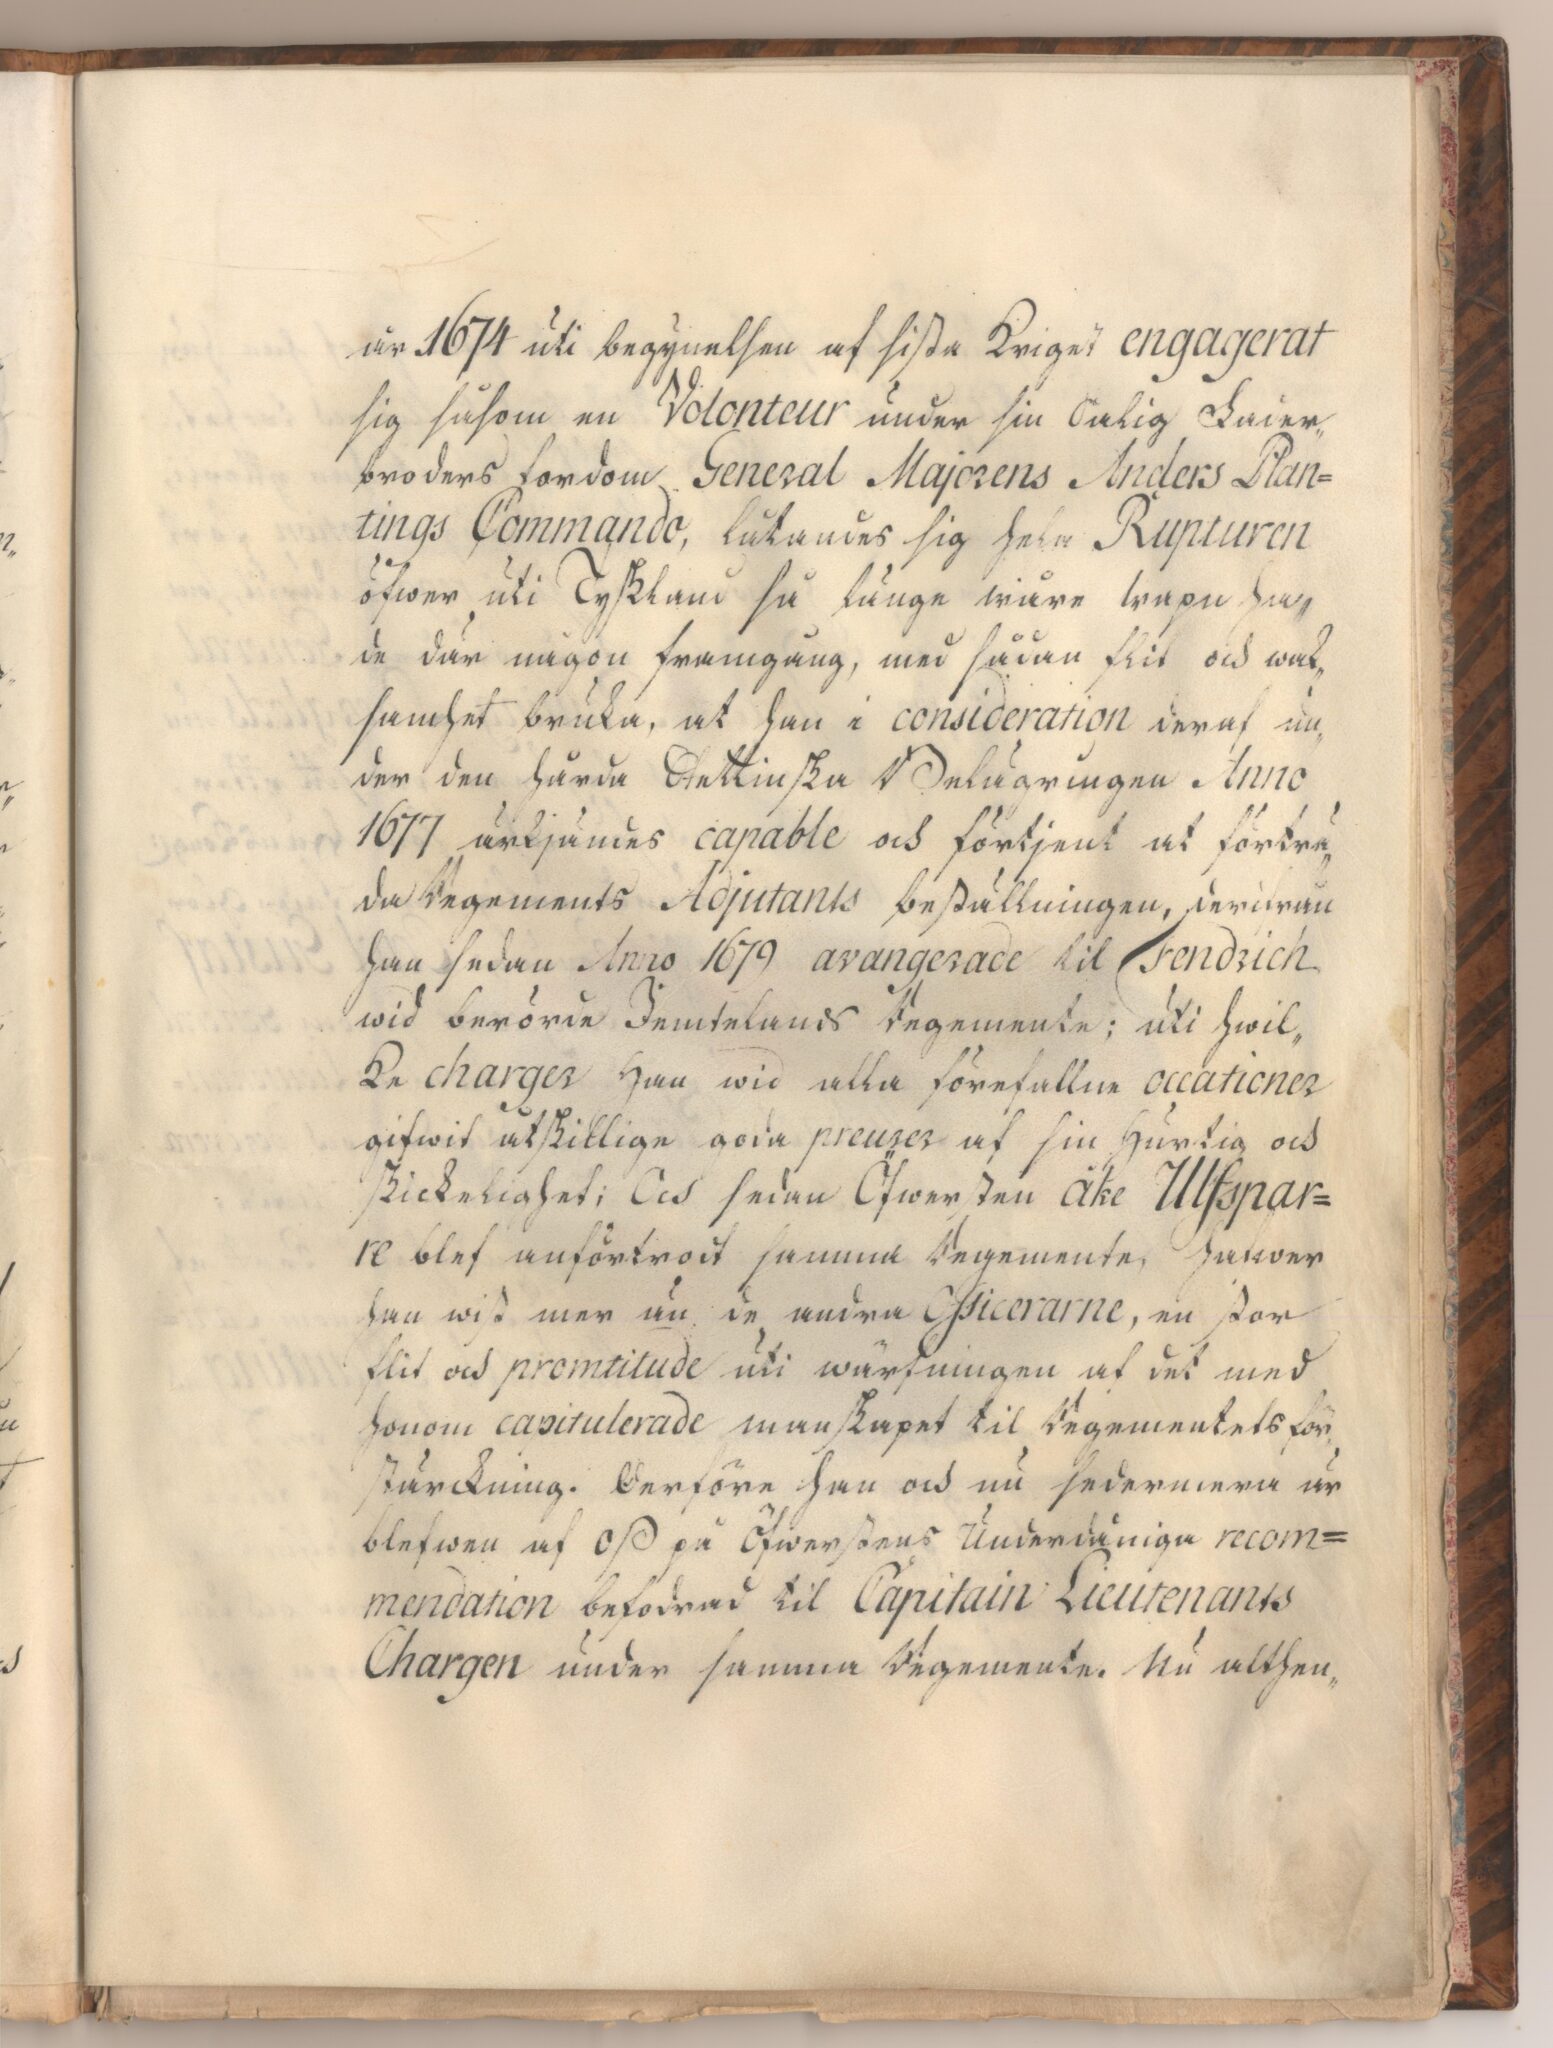 år 1674 uti begynelsen af sista Kriget engagerat
sig såsom en Volonteur under sin Salig Fader„
broders fordom General Majorens Anders Plan=
tings Commando, låtandes sig hela Rupturen
öfwer uti Tyskland så länge wåre wapn ha„
de där någon framgång, med sådan flit och wak„
samhet bruka, at han i consideration deraf un„
der den hårda Stettinska Belägringen Anno
1677 ärkjändes capable och förtjent at förträ„
da Regements Adjutants beställningen, derifrån
han sedan Anno 1679 avangerade til Fendrich
wid berörde Jemtelands Regemente; uti hwil„
ke charger Han wid alla förefallne occationer
gifwit åtskillige goda preuver af sin Hurtig och
Skickelighet; Och sedan Öfwersten Åke Ulfspar=
re blef anförtrodt samma Regemente, hafwer
han wist mer än de andra Officerarne, en stor
flit och promtitude uti wärfningen af det med
honom capitulerade manskapet til Regementets för„
stärckning. Derföre han och nu sedermera är
blefwen af oss på Öfwerstens Underdåniga recom=
mendation befodrad til Capitain Lieutenants
Chargen under samma Regemente. Nu althen„